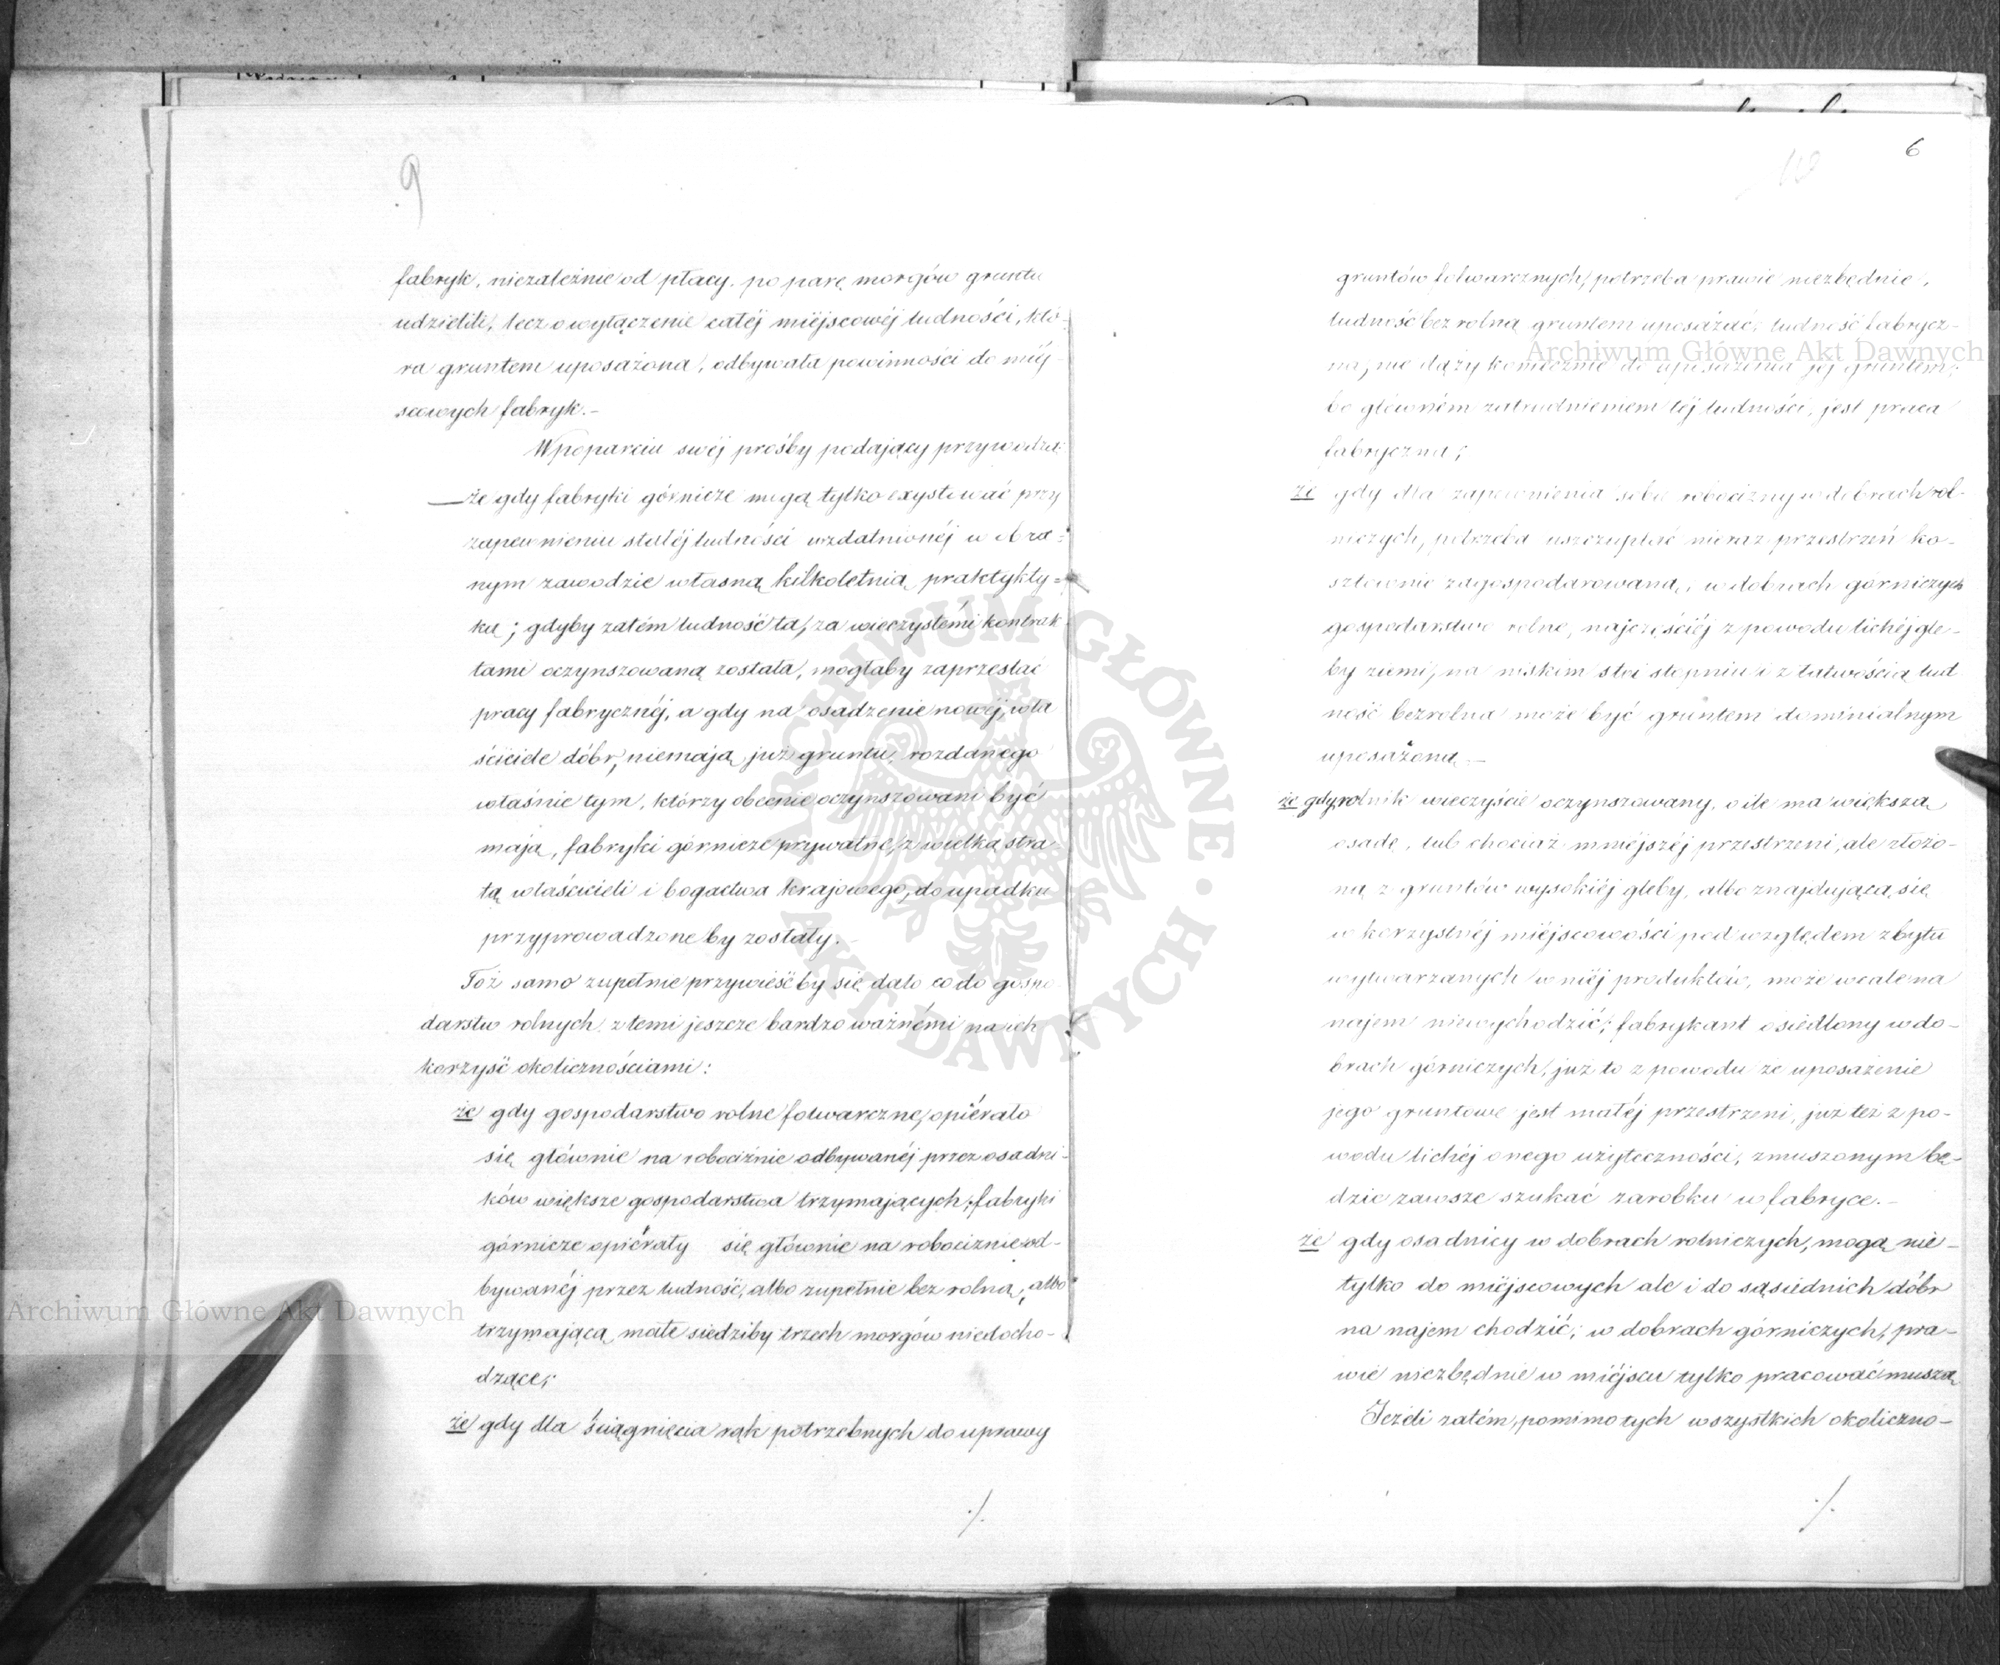 9
fabryk, niezależnie od płacy, po parę morgów gruntu
udzielili, lecz o wyłączenie całéj miéjscowéj ludności, któ-
ra gruntem uposażona, odbywała powinności do miéj-
scowych fabryk.-
W poparciu swéj prośby podający przywodzą:
że gdy fabryki górnicze mogą tylko exystować przy
zapewnieniu stałéj ludności uzdatnionéj w
nym zawodzie własną kilkoletnią praktykty-
ką; gdyby zatém ludność ta, za wieczystémi kontrak-
tami oczynszowaną została, mogłaby zaprzestać
pracy fabrycznéj, a gdy na osadzenie nowéj, wła
ściciele dóbr, niemają już gruntu, rozdanego
właśnie tym, którzy obecnie oczynszowani być
mają, fabryki górnicze prywatne, z wielką stra-
tą właścicieli i bogactwa krajowego, do upadku
przyprowadzone by zostały.-
Toż samo zupełnie przywieść by się dało co do gospo
darstw rolnych, z temi jeszcze bardzo ważnémi na ich
korzyść okolicznościami:
że gdy gospodarstwo rolne folwarczne, opiérało
się głównie na robociźnie odbywanéj przez osadni-
ków większe gospodarstwa trzymających; fabryki
górnicze opiérały się głównie na robociznie od-
bywanéj przez ludność, albo zupełnie bez rolną, albo
trzymającą małe siedziby trzech morgów niedocho-
dzące;
że gdy dla ściągnięcia rąk potrzebnych do uprawy
./.
10
6
gruntów folwarcznych, potrzeba prawie niezbędnie,
ludność bezrolną gruntem uposażać; ludność fabrycz-
na, nie dąży koniecznie do uposażenia jéj gruntem;
bo główném zatrudnieniem téj ludności, jest praca
fabryczna;
że gdy dla zapewnienia sobie robocizny w dobrach rol-
niczych, potrzeba uszczuplać nieraz przestrzeń ko-
sztownie zagospodarowaną; w dobrach górniczych
gospodarstwo rolne, najczęściéj z powodu lichéj gle-
by ziemi, na niskim stoi stopniu i z łatwością lud
ność bezrolna może być gruntem dominialnym
uposażoną.-
że gdy rolnik wieczyście oczynszowany, o ile ma większą
osadę, lub chociaż mniéjszéj przestrzeni, ale złożo-
ną z gruntów wysokiéj gleby, albo znajdującą się
w korzystnéj miéjscowości pod względem zbytu
wytwarzanych w niéj produktów, może wcale na
najem niewychodzić; fabrykant osiedlony w do-
brach górniczych, już to z powodu że uposażenie
jego gruntowe jest małéj przestrzeni, już téż z po-
wodu lichéj onego użyteczności, zmuszonym bę-
dzie zawsze szukać zarobku w fabryce.-
że gdy osadnicy w dobrach rolniczych, mogą nie-
tylko do miéjscowych ale i do sąsiednich dóbr
na najem chodzić; w dobrach górniczych, pra-
wie niezbędnie w miéjscu tylko pracować muszą
Jeżeli zatém, pomimo tych wszystkich okoliczno-
./.
Archiwum Główne Akt Dawnych
Archiwum Główne Akt Dawnych
ARCHIWUM GŁÓWNE AKT DAWNYCH